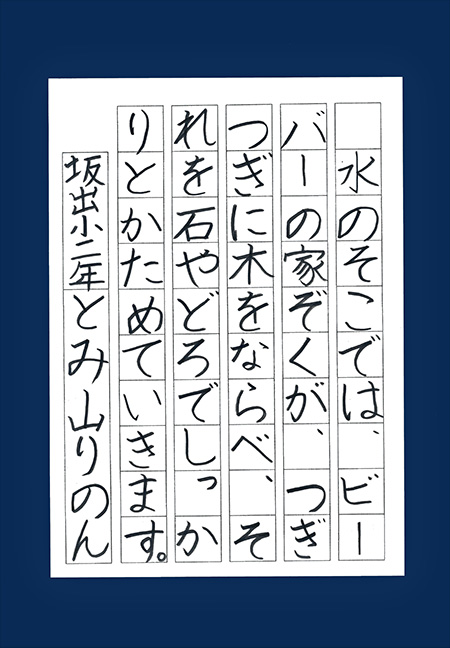 水のそこでは、ビー
バーの家ぞくが、つぎ
つぎに木をならべ、そ
れを石やどろでしっか
りとかためていきます。
坂出小二年とみ山りのん